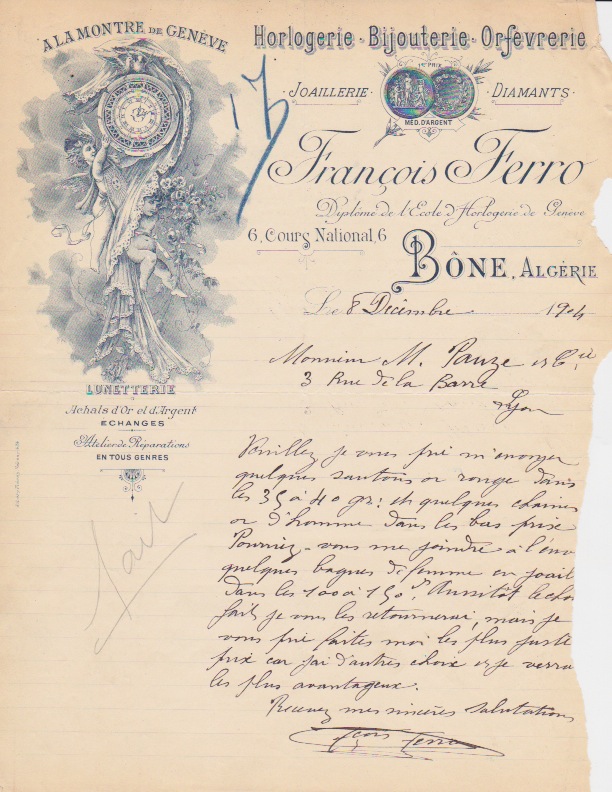 A LA MONTRE DE GENÈVE
Horlogerie - Bijouterie - Orfèvrerie
1er PRIX
JOAILLERIE
DIAMANTS
MÉD. D'ARGENT
17
François Ferro
Diplômé de l'Ecole d'Horlogerie de Genève
6, Cours National, 6
BÔNE, ALGÉRIE
Le 8 Décembre 1904
Monsieur M. Pauze et Cie
3 Rue de la Barre
Lyon
LUNETTERIE
Achats d'Or et d'Argent
ECHANGES
Atelier de Réparations
EN TOUS GENRES
Veuillez je vous prie m'envoyer
quelques sautoirs or rouge dans
les 35 à 40 gr: et quelques chaines
or d'homme dans les bas prix
Pourriez-vous me joindre à l'env
quelques bagues de femme en joail
dans les 100 à 150 f. Aussitôt le choi
fait je vous les retournerai, mais je
vous prie faites moi les plus juste
prix car j'ai d'autres choix et je verra
les plus avantageux.
Recevez mes sincères salutations
Fçois Ferro
fait